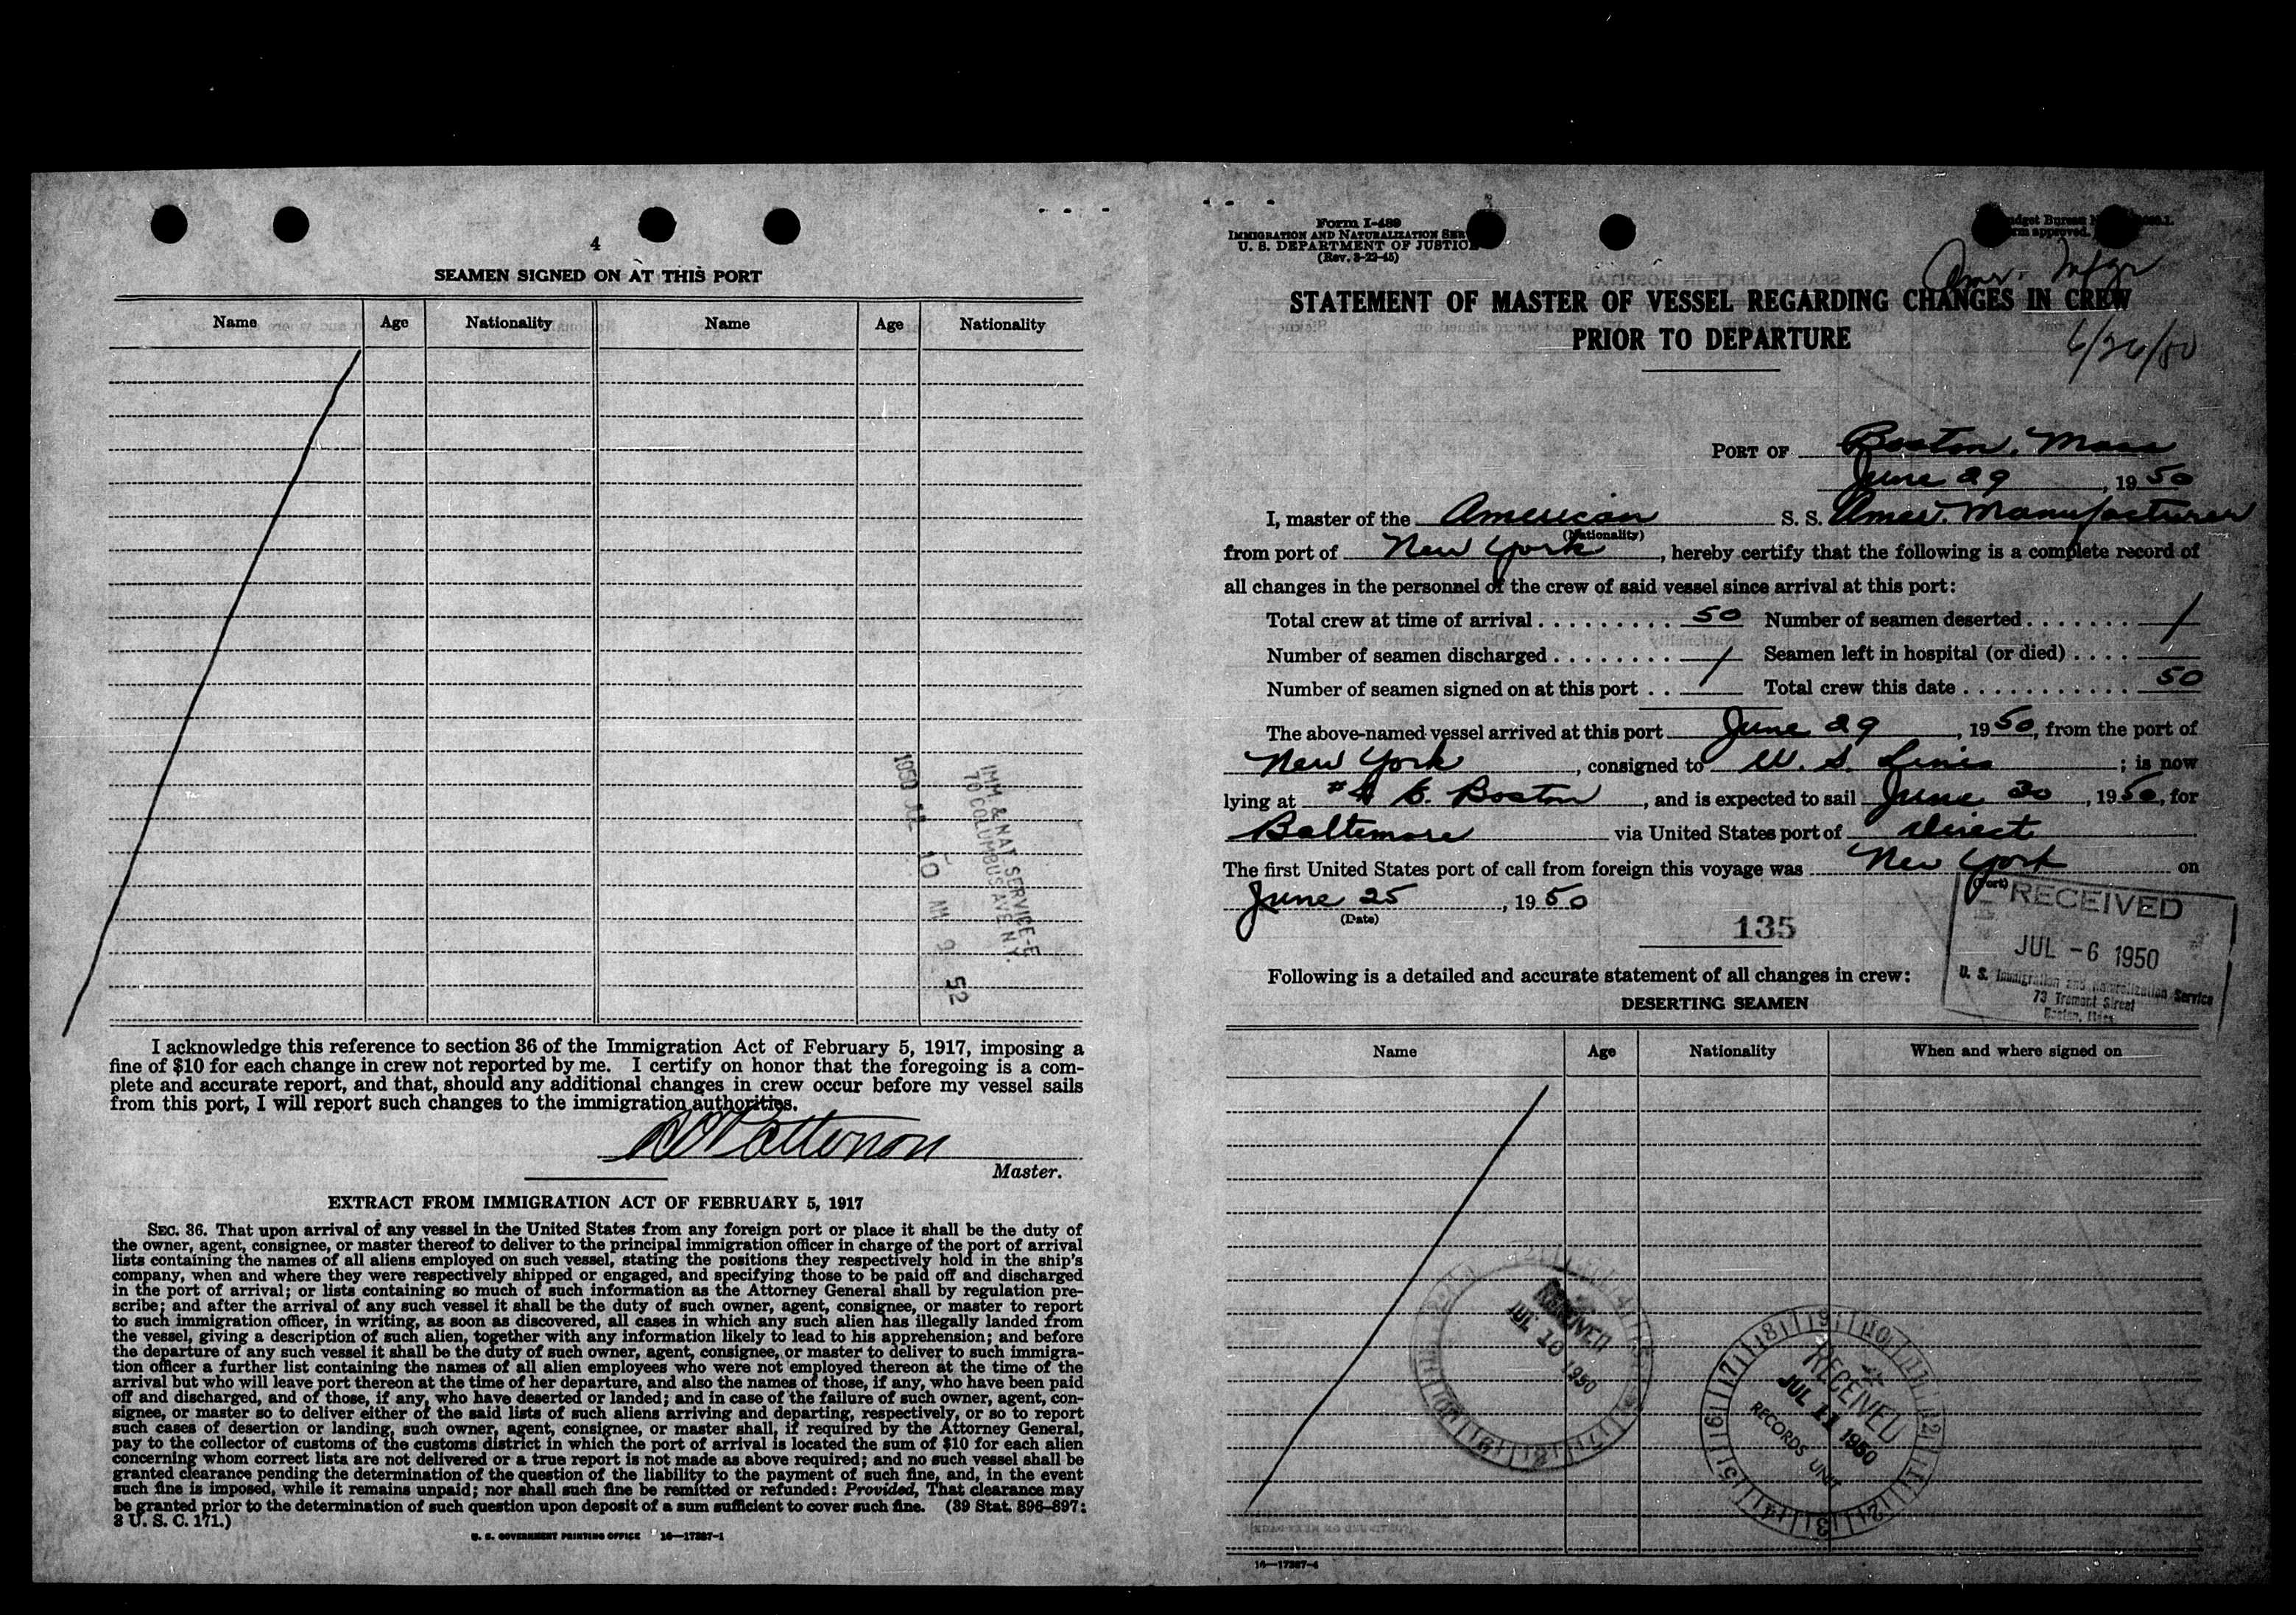 4
SEAMEN SIGNED ON AT THIS PORT
Name Age Nationality Name Age Nationality
IMM & NAT SERVICE-E
70 COLUMBUS AVE N.Y.
1950 JUL 10 AM 9 52
I acknowledge this reference to section 36 of the Immigration Act of February 5, 1917, imposing a
fine of $10 for each change in crew not reported by me. I certify on honor that the foregoing is a com-
plete and accurate report, and that, should any additional changes in crew occur before my vessel sails
from this port, I will report such changes to the immigration authorities.
Patterson
Master.
EXTRACT FROM IMMIGRATION ACT OF FEBRUARY 5, 1917
SEC. 36. That upon arrival of any vessel in the United States from any foreign port or place it shall be the duty of
the owner, agent, consignee, or master thereof to deliver to the principal immigration officer in charge of the port of arrival
lists containing the names of all aliens employed on such vessel, stating the positions they respectively hold in the ship's
company, when and where they were respectively shipped or engaged, and specifying those to be paid off and discharged
in the port of arrival; or lists containing so much of such information as the Attorney General shall by regulation pre-
scribe; and after the arrival of any such vessel it shall be the duty of such owner, agent, consignee, or master to report
to such immigration officer, in writing, as soon as discovered, all cases in which any such alien has illegally landed from
the vessel, giving a description of such alien, together with any information likely to lead to his apprehension; and before
the departure of any such vessel it shall be the duty of such owner, agent, consignee, or master to deliver to such immigra-
tion officer a further list containing the names of all alien employees who were not employed thereon at the time of the
arrival but who will leave port thereon at the time of her departure, and also the names of those, if any, who have been paid
off and discharged, and of those, if any, who have deserted or landed; and in case of the failure of such owner, agent, con-
signee, or master so to deliver either of the said lists of such aliens arriving and departing, respectively, or so to report
such cases of desertion or landing, such owner, agent, consignee, or master shall, if required by the Attorney General,
pay to the collector of customs of the customs district in which the port of arrival is located the sum of $10 for each alien
concerning whom correct lists are not delivered or a true report is not made as above required; and no such vessel shall be
granted clearance pending the determination of the question of the liability to the payment of such fine, and, in the event
such fine is imposed, while it remains unpaid; nor shall such fine be remitted or refunded: Provided, That clearance may
be granted prior to the determination of such question upon deposit of a sum sufficient to cover such fine. (39 Stat. 896–897;
8 U. S. C. 171.)
U. S. GOVERNMENT PRINTING OFFICE 16—17287-1
Form I-489
IMMIGRATION AND NATURALIZATION SER
U. S. DEPARTMENT OF JUSTICE
(Rev. 3-22-45)
dget Bureau
rm approved.
Amer. Mfgr
STATEMENT OF MASTER OF VESSEL REGARDING CHANGES IN CREW
PRIOR TO DEPARTURE
6/26/50
PORT OF Boston, Mass
June 29, 1950
I, master of the American S. S. Amer. Manufacturer
(Nationality)
from port of New York, hereby certify that the following is a complete record of
all changes in the personnel of the crew of said vessel since arrival at this port:
Total crew at time of arrival . . . . . . . . . 50 Number of seamen deserted . . . . . . . /
Number of seamen discharged . . . . . . . . / Seamen left in hospital (or died) . . . .
Number of seamen signed on at this port . . Total crew this date . . . . . . . . . . . 50
The above-named vessel arrived at this port June 29, 1950, from the port of
New York, consigned to U. S. Lines; is now
lying at #4 E. Boston, and is expected to sail June 30, 1950, for
Baltimore via United States port of direct
The first United States port of call from foreign this voyage was New York on
(Port)
June 25, 1950
(Date)
135
RECEIVED
JUL -6 1950
U. S. Immigration and Naturalization Service
73 Tremont Street
Boston, Mass.
Following is a detailed and accurate statement of all changes in crew:
DESERTING SEAMEN
Name Age Nationality When and where signed on
RECEIVED
JUL 10 1950
RECEIVED
JUL 11 1950
RECORDS UNIT
16—17287-4